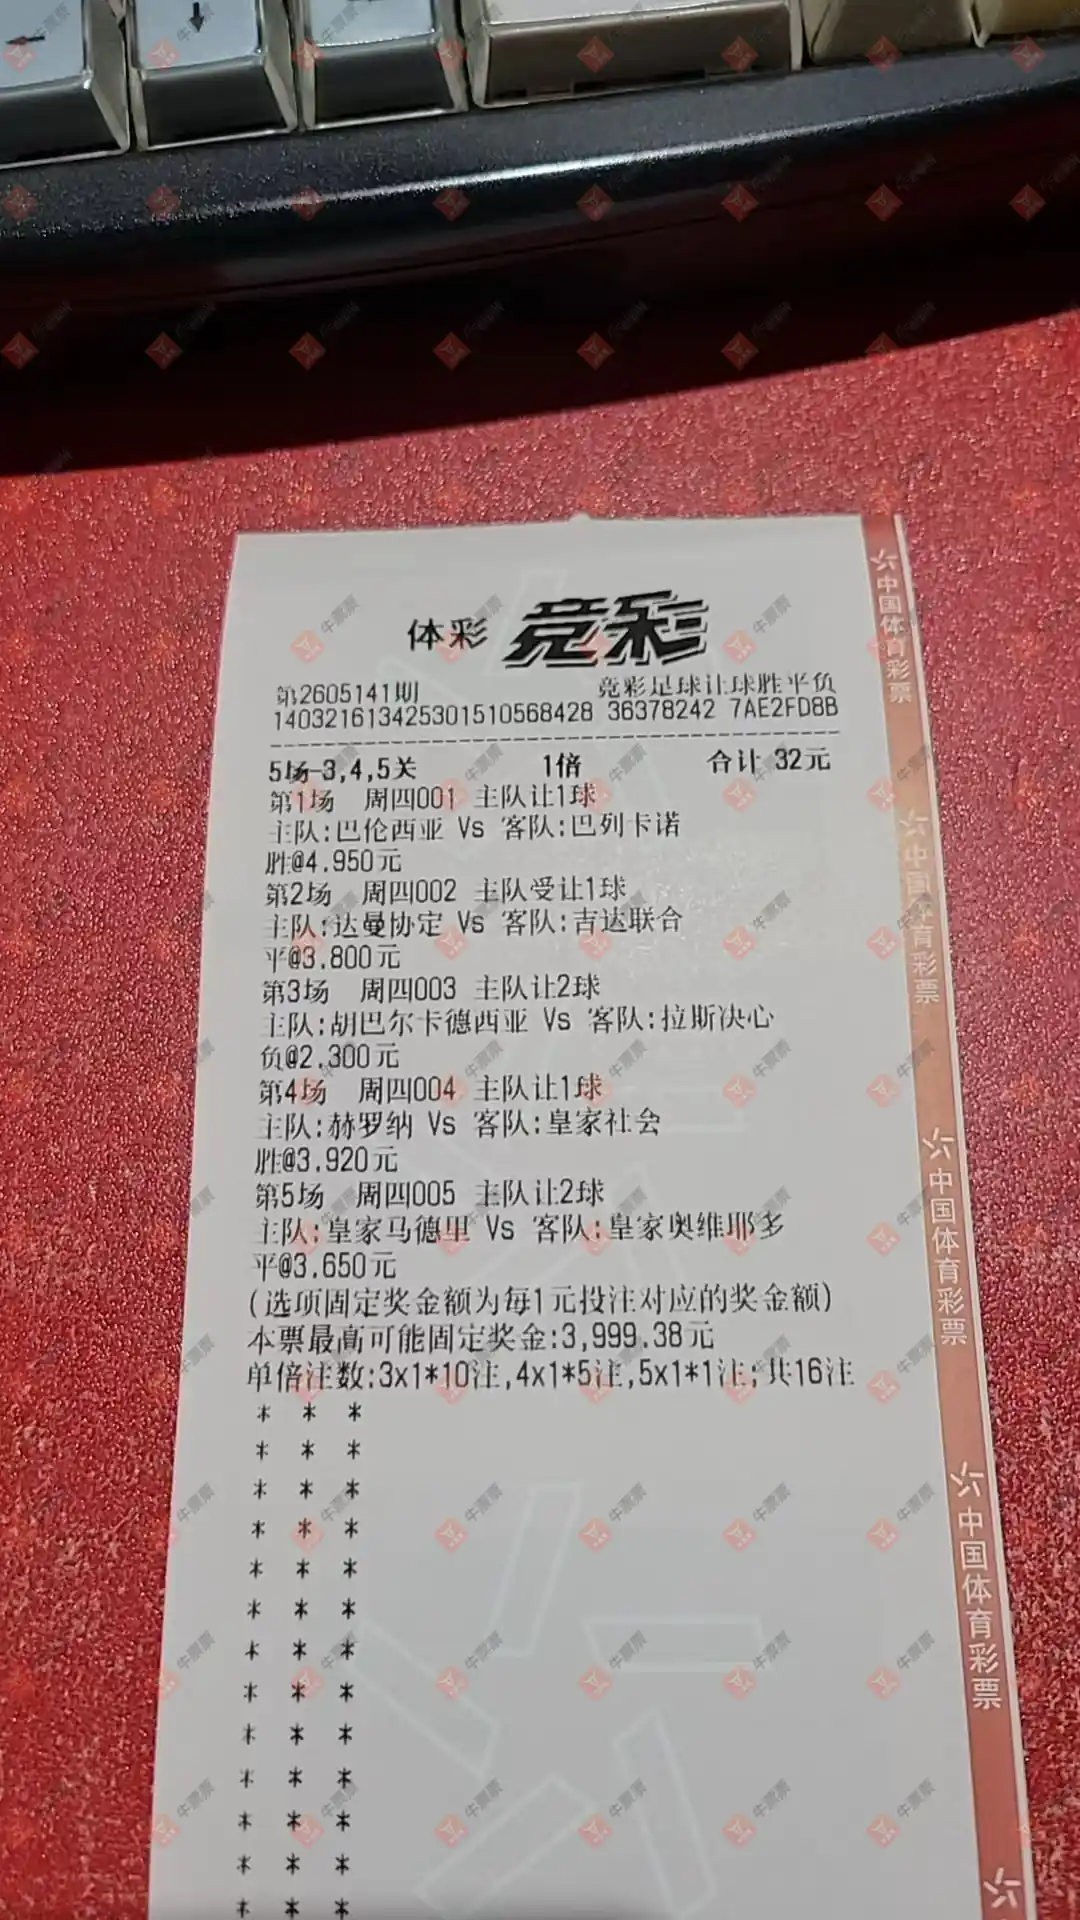 体彩 竞彩
第2605141期 竞彩足球让球胜平负
140321613425301510568428 36378242 7AE2FD8B
5场-3,4,5关 1倍 合计 32元
第1场 周四001 主队让1球
主队:巴伦西亚 Vs 客队:巴列卡诺
胜@4.950元
第2场 周四002 主队受让1球
主队:达曼协定 Vs 客队:吉达联合
平@3.800元
第3场 周四003 主队让2球
主队:胡巴尔卡德西亚 Vs 客队:拉斯决心
负@2.300元
第4场 周四004 主队让1球
主队:赫罗纳 Vs 客队:皇家社会
胜@3.920元
第5场 周四005 主队让2球
主队:皇家马德里 Vs 客队:皇家奥维耶多
平@3.650元
(选项固定奖金额为每1元投注对应的奖金额)
本票最高可能固定奖金:3,999.38元
单倍注数:3x1*10注,4x1*5注,5x1*1注;共16注
* * *
* * *
* * *
* * *
* * *
* * *
* * *
* * *
* * *
* * *
* * *
* * *
* * *
中国体育彩票
中国体育彩票
中国体育彩票
中国体育彩票
牛票票